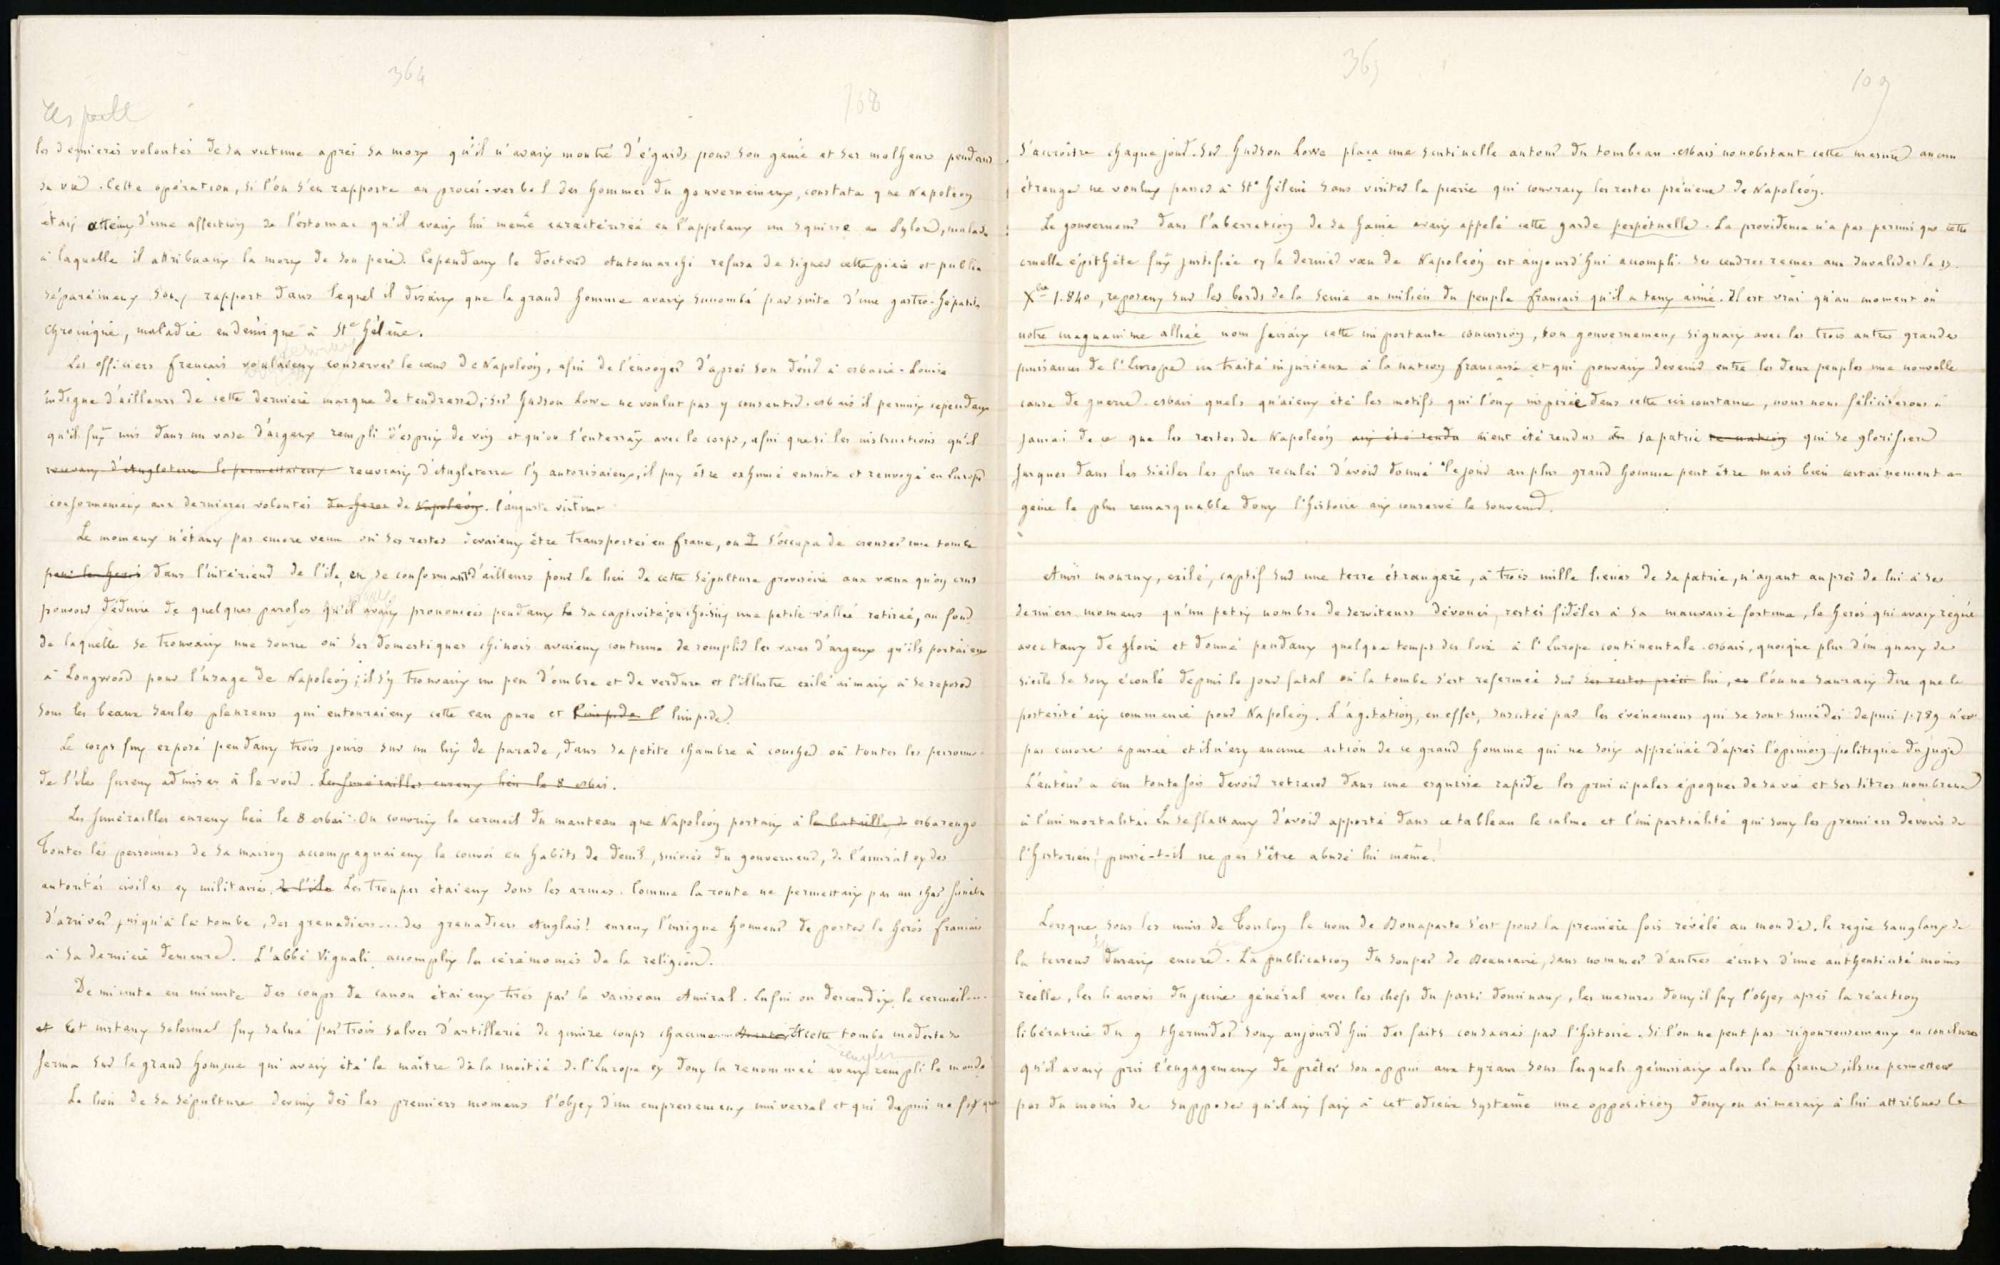 364
108
les dernieres volontés de sa victime après sa mort qu'il n'avait montré d'égards pour son génie et ses malheurs pendant
sa vie. Cette opération, si l'on s'en rapporte au procès-verbal des hommes du gouvernement, constata que Napoléon
était atteint d'une affection de l'estomac qu'il avait lui même caractérisée en l'appelant un squirre au pylore, maladie
à laquelle il attribuait la mort de son père. Cependant le docteur Automarchi refusa de signer cette pièce et publia
séparément son rapport dans lequel il disait que le grand homme avait succombé par suite d'une gastro-hépatite
chronique, maladie endémique à Ste Hélène.
Les officiers français voulaient conserver le cœur de Napoléon, afin de l'envoyer d'après son désir à Marie-Louise
indigne d'ailleurs de cette dernière marque de tendresse; Sir Hudson Lowe ne voulut pas y consentir. Mais il permit cependant
qu'il fut mis dans un vase d'argent rempli d'esprit de vin et qu'on l'enterrât avec le corps, afin que si les instructions qu'il
recevait d'Angleterre le permettaient recevrait d'Angleterre l'y autorisaient, il put être exhumé ensuite et renvoyé en Europe
conformément aux dernieres volontés du heros de Napoléon. l'auguste victime
Le moment n'étant pas encore venu où ses restes devaient être transportés en france, on s'occupa de creuser une tombe
pour le heros dans l'intérieur de l'ile, en se conformant d'ailleurs pour le lieu de cette sépulture provisoire aux vœux qu'on crut
pouvoir déduire de quelques paroles qu'il avait prononcées pendant sa captivité; on choisit une petite vallée retirée, au fond
de laquelle se trouvait une source où ses domestiques chinois avaient coutume de remplir les vases d'argent qu'ils portaient
à Longwood pour l'usage de Napoléon; il s'y trouvait un peu d'ombre et de verdure et l'illustre exilé aimait à se reposer
sous les beaux saules pleureurs qui entouraient cette eau pure et limpide l' limpide.
Le corps fut exposé pendant trois jours sur un lit de parade, dans sa petite chambre à coucher où toutes les personnes
de l'ile furent admises à le voir. Les funérailles eurent lieu le 8 Mai.
Les funérailles eurent lieu le 8 Mai. On couvrit le cercueil du manteau que Napoléon portait à la bataille de Marengo
Toutes les personnes de sa maison accompagnaient le convoi en habits de deuil, suivies du gouverneur, de l'amiral et des
autorités civiles et militaires de l'ile Les troupes étaient sous les armes. Comme la route ne permettait pas au char funèbre
d'arriver jusqu'à la tombe, des grenadiers... des grenadiers Anglais! eurent l'insigne honneur de porter le héros français
à sa dernière demeure. L'abbé Vignali accomplit les cérémonies de la religion.
De minute en minute des coups de canon étaient tirés par le vaisseau Amiral. Enfin on descendit le cercueil....
et Cet instant solennel fut salué par trois salves d'artillerie de quinze coups chacune Et cette tombe modeste se
ferma sur le grand homme qui avait été le maître de la moitié de l'Europe et dont la renommée avait rempli le monde
Le lieu de sa sépulture devint dès les premiers momens l'objet d'un empressement universel et qui depuis ne fit que
365
109
s'accroître chaque jour. Sir Hudson Lowe plaça une sentinelle autour du tombeau. Mais nonobstant cette mesure aucun
étranger ne voulut passer à Ste Hélène sans visiter la pierre qui couvrait les restes précieux de Napoléon.
Le gouverneur dans l'aberration de sa haine avait appelé cette garde perpétuelle. La providence n'a pas permis que cette
cruelle épithète fut justifiée et le dernier vœu de Napoléon est aujourd'hui accompli. Ses cendres remises aux Invalides le 15
Xbre 1.840, reposent sur les bords de la Seine au milieu du peuple français qu'il a tant aimé. Il est vrai qu'au moment où
notre magnanime alliée nous faisait cette importante concession, son gouvernement signait avec les trois autres grandes
puissances de l'Europe un traité injurieux à la nation française et qui pouvait devenir entre les deux peuples une nouvelle
cause de guerre. Mais quels qu'aient été les motifs qui l'ont inspirée dans cette circonstance, nous nous féliciterons à
jamais de ce que les restes de Napoléon ait été rendu aient été rendus à sa patrie qui se glorifiera
jusques dans les siècles les plus reculés d'avoir donné le jour au plus grand homme peut être mais bien certainement au
génie le plus remarquable dont l'histoire ait conservé le souvenir.
Ainsi mourut, exilé, captif sur une terre étrangère, à trois mille lieues de sa patrie, n'ayant auprès de lui à ses
derniers momens qu'un petit nombre de serviteurs dévoués, restés fidèles à sa mauvaise fortune, le heros qui avait régné
avec tant de gloire et donné pendant quelque temps des loix à l'Europe continentale. Mais, quoique plus d'un quart de
siècle se soit écoulé depuis le jour fatal où la tombe s'est refermée sur ses restes lui, l'on ne saurait dire que la
postérité ait commencé pour Napoléon. L'agitation, en effet, suscitée par les événemens qui se sont succédés depuis 1.789 n'est
pas encore apaisée et il n'est aucune action de ce grand homme qui ne soit appréciée d'après l'opinion politique du juge
L'auteur a cru toutefois devoir retracer dans une esquisse rapide les principales époques de sa vie et ses titres nombreux
à l'immortalité. En se flattant d'avoir apporté dans ce tableau le calme et l'impartialité qui sont les premiers devoirs de
l'historien! puisse-t-il ne pas s'être abusé lui même!
Lorsque sous les murs de Toulon le nom de Bonaparte s'est pour la première fois révélé au monde, le règne sanglant de
la terreur durait encore. La publication du souper de Beaucaire, sans nommer d'autres écrits d'une authenticité moins
réelle, les liaisons du jeune général avec les chefs du parti dominant, les mesures dont il fut l'objet après la réaction
libératrice du 9 thermidor sont aujourd'hui des faits consacrés par l'histoire. Si l'on ne peut pas rigoureusement en conclure
qu'il avait pris l'engagement de prêter son appui aux tyrans sous lesquels gémissait alors la france, ils ne permettent
pas du moins de supposer qu'il ait fait à cet odieux système une opposition dont on aimerait à lui attribuer le